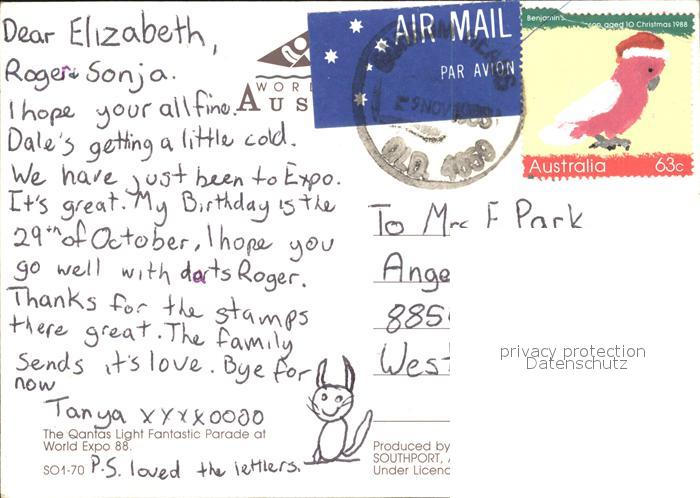 Dear Elizabeth,
Roger Sonja.
I hope your all fine.
Dale's getting a little cold.
We have just been to Expo.
It's great. My Birthday is the
29th of October, I hope you
go well with darts Roger.
Thanks for the stamps
there great. The family
Sends it's love. Bye for
now
Tanya xxxxoooo
The Qantas Light Fantastic Parade at
World Expo 88.
SO1-70 P.S. loved the lettlers.
WORL
AUS
AIR MAIL
PAR AVION
NOV
QLD. 4069
Benjamin's aged 10 Christmas 1988
Australia 63c
To Mrs F Park
Ange
885
West
privacy protection
Datenschutz
Produced by
SOUTHPORT,
Under Licenc